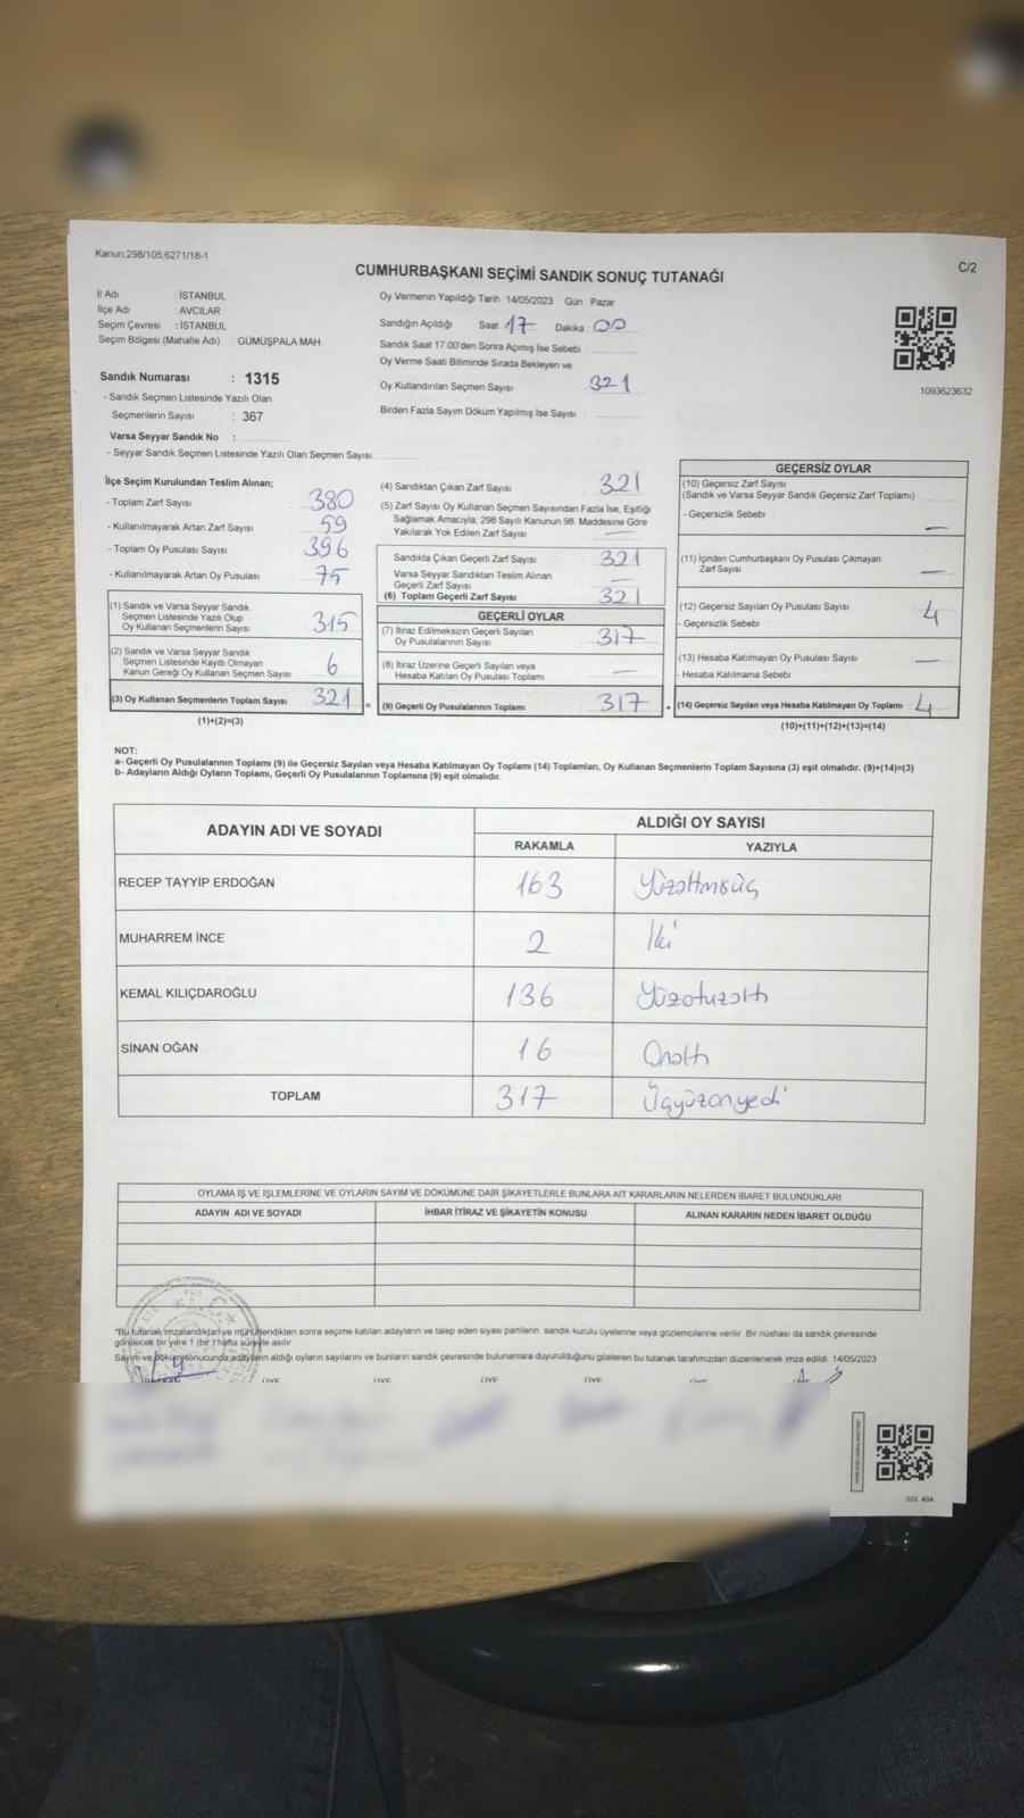 Kanun:298/105,6271/18-1
C/2
CUMHURBAŞKANI SEÇİMİ SANDIK SONUÇ TUTANAĞI
İl Adı : İSTANBUL
İlçe Adı : AVCILAR
Seçim Çevresi : İSTANBUL
Seçim Bölgesi (Mahalle Adı) GÜMÜŞPALA MAH.
Sandık Numarası : 1315
- Sandık Seçmen Listesinde Yazılı Olan
Seçmenlerin Sayısı : 367
Varsa Seyyar Sandık No :
- Seyyar Sandık Seçmen Listesinde Yazılı Olan Seçmen Sayısı
Oy Vermenin Yapıldığı Tarih 14/05/2023 Gün Pazar
Sandığın Açıldığı Saat 17 Dakika 00
Sandık Saat 17:00'den Sonra Açılmış İse Sebebi
Oy Verme Saati Bitiminde Sırada Bekleyen ve
Oy Kullandırılan Seçmen Sayısı 321
Birden Fazla Sayım Döküm Yapılmış İse Sayısı
1093623632
İlçe Seçim Kurulundan Teslim Alınan;
- Toplam Zarf Sayısı 380
- Kullanılmayarak Artan Zarf Sayısı 59
- Toplam Oy Pusulası Sayısı 396
- Kullanılmayarak Artan Oy Pusulası 75
(1) Sandık ve Varsa Seyyar Sandık
Seçmen Listesinde Yazılı Olup
Oy Kullanan Seçmenlerin Sayısı 315
(2) Sandık ve Varsa Seyyar Sandık
Seçmen Listesinde Kayıtlı Olmayan
Kanun Gereği Oy Kullanan Seçmen Sayısı 6
(3) Oy Kullanan Seçmenlerin Toplam Sayısı 321
(1)+(2)=(3)
(4) Sandıktan Çıkan Zarf Sayısı 321
(5) Zarf Sayısı Oy Kullanan Seçmen Sayısından Fazla İse, Eşitliği
Sağlamak Amacıyla; 298 Sayılı Kanunun 98. Maddesine Göre
Yakılarak Yok Edilen Zarf Sayısı —
Sandıkta Çıkan Geçerli Zarf Sayısı 321
Varsa Seyyar Sandıktan Teslim Alınan
Geçerli Zarf Sayısı —
(6) Toplam Geçerli Zarf Sayısı 321
GEÇERLİ OYLAR
(7) İtiraz Edilmeksizin Geçerli Sayılan
Oy Pusulalarının Sayısı 317
(8) İtiraz Üzerine Geçerli Sayılan veya
Hesaba Katılan Oy Pusulası Toplamı —
(9) Geçerli Oy Pusulalarının Toplamı 317
GEÇERSİZ OYLAR
(10) Geçersiz Zarf Sayısı
(Sandık ve Varsa Seyyar Sandık Geçersiz Zarf Toplamı)
- Geçersizlik Sebebi —
(11) İçinden Cumhurbaşkanı Oy Pusulası Çıkmayan
Zarf Sayısı —
(12) Geçersiz Sayılan Oy Pusulası Sayısı 4
- Geçersizlik Sebebi
(13) Hesaba Katılmayan Oy Pusulası Sayısı —
- Hesaba Katılmama Sebebi
(14) Geçersiz Sayılan veya Hesaba Katılmayan Oy Toplamı 4
(10)+(11)+(12)+(13)=(14)
NOT:
a- Geçerli Oy Pusulalarının Toplamı (9) ile Geçersiz Sayılan veya Hesaba Katılmayan Oy Toplamı (14) Toplamları, Oy Kullanan Seçmenlerin Toplam Sayısına (3) eşit olmalıdır. (9)+(14)=(3)
b- Adayların Aldığı Oyların Toplamı, Geçerli Oy Pusulalarının Toplamına (9) eşit olmalıdır.
ADAYIN ADI VE SOYADI
ALDIĞI OY SAYISI
RAKAMLA YAZIYLA
RECEP TAYYİP ERDOĞAN 163 Yüzaltmışüç
MUHARREM İNCE 2 İki
KEMAL KILIÇDAROĞLU 136 Yüzotuzaltı
SİNAN OĞAN 16 Onaltı
TOPLAM 317 Üçyüzonyedi
OYLAMA İŞ VE İŞLEMLERİNE VE OYLARIN SAYIM VE DÖKÜMÜNE DAİR ŞİKAYETLERLE BUNLARA AİT KARARLARIN NELERDEN İBARET BULUNDUKLARI
ADAYIN ADI VE SOYADI İHBAR İTİRAZ VE ŞİKAYETİN KONUSU ALINAN KARARIN NEDEN İBARET OLDUĞU
"Bu tutanak imzalandıktan ve mühürlendikten sonra seçime katılan adayların ve talep eden siyasi partilerin, sandık kurulu üyelerine veya gözlemcilerine verilir. Bir nüshası da sandık çevresinde
görülecek bir yere 1 (bir) hafta süreyle asılır
Sayım ve döküm sonucunda adayların aldığı oyların sayılarını ve bunların sandık çevresinde bulunanlara duyurulduğunu gösteren bu tutanak tarafımızdan düzenlenerek imza edildi. 14/05/2023